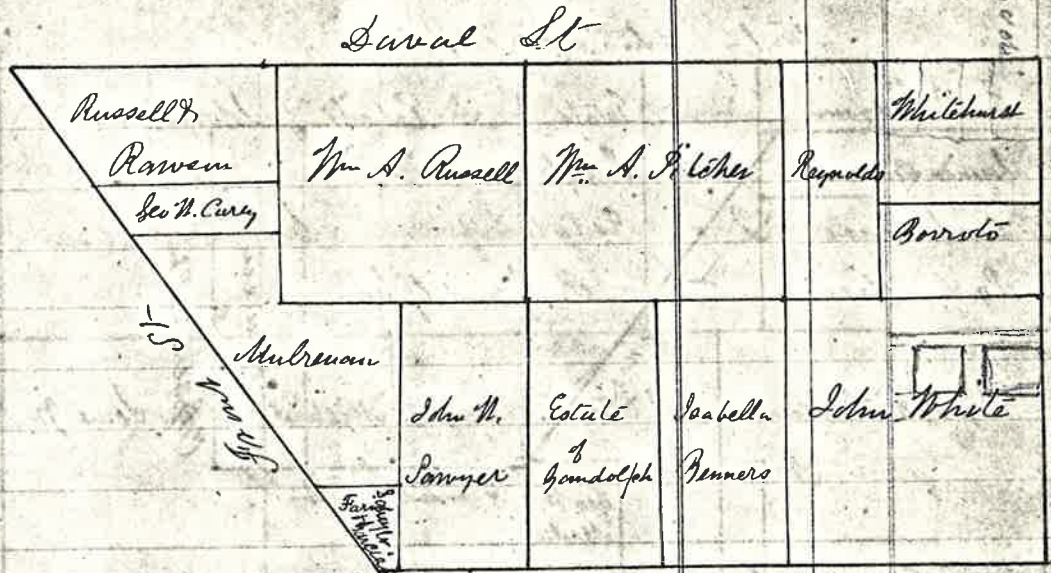 Duval St
Russell &
Rawson
Geo N. Curey
Wm A. Russell
Wm A. Pitcher
Reynolds
Whitehurst
Borroto
Mulrenan
St
John N.
Sawyer
Estate
of
Gomdolph
Isabella
Benners
John White